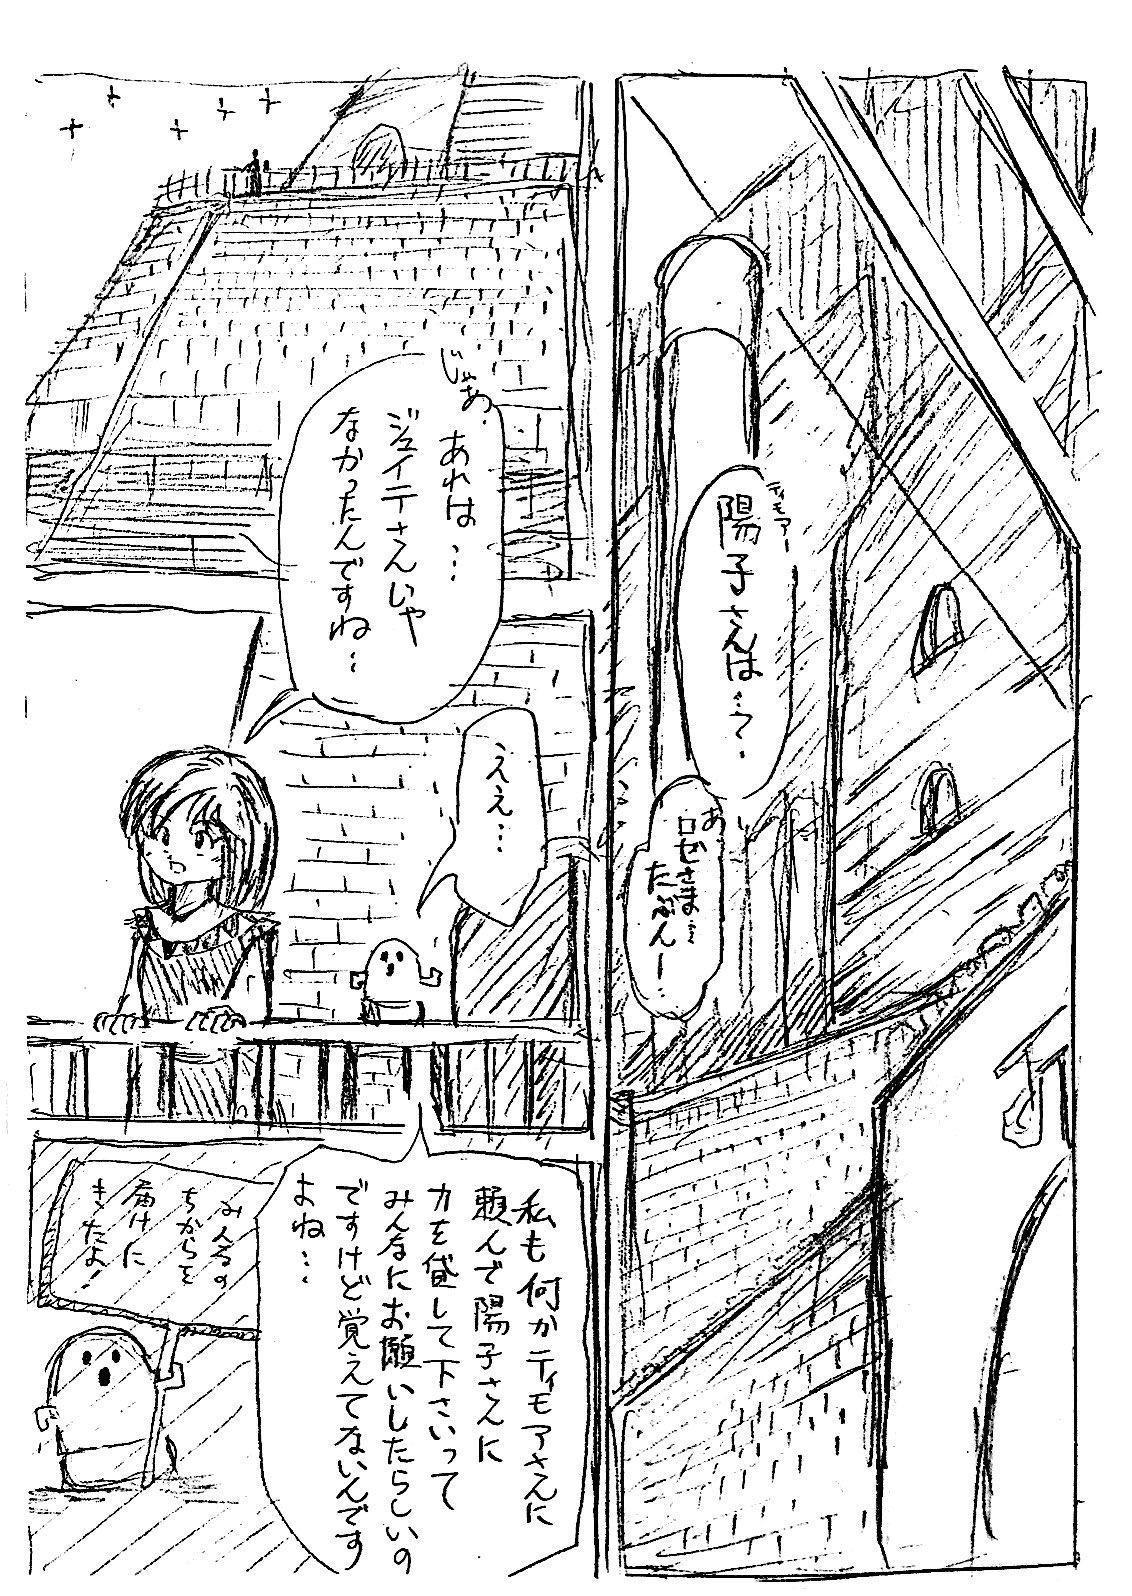 ティモアー
陽子さんは…?
あ、
ロゼさま…
たぶんー
じゃあ、
あれは…
ジュイテさんじゃ
なかったんですね…
ええ…
私も何かティモアさんに
頼んで陽子さんに
力を貸して下さいって
みんなにお願いしたらしいの
ですけど覚えてないんです
よね…
みんなの
ちからを
届けに
きたよ!